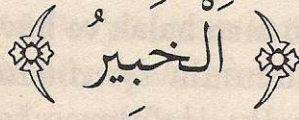 اَلْخَبِيرُ